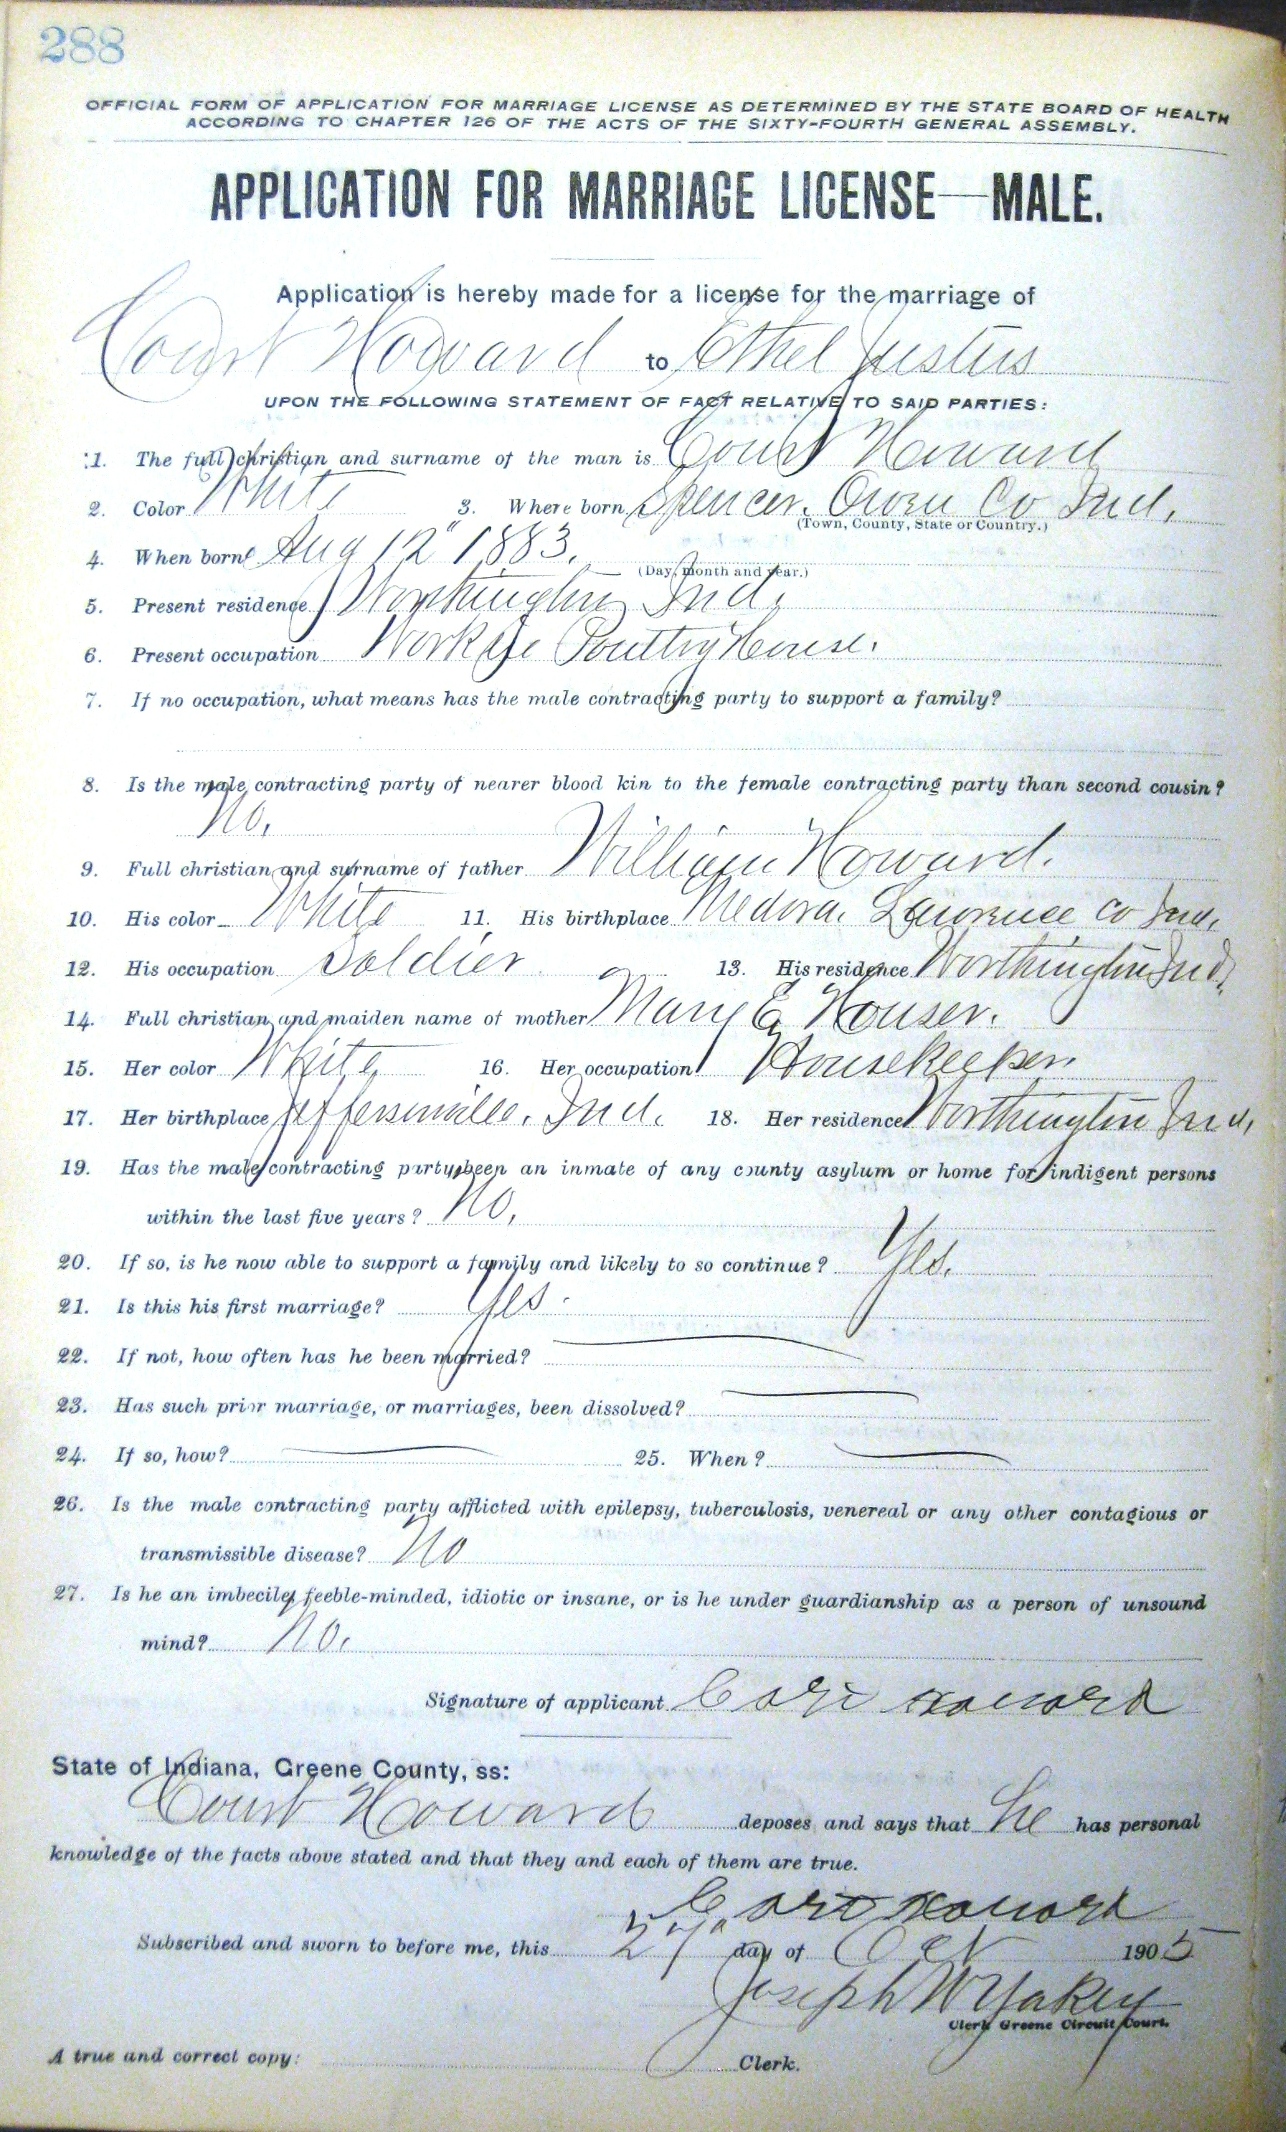 288
OFFICIAL FORM OF APPLICATION FOR MARRIAGE LICENSE AS DETERMINED BY THE STATE BOARD OF HEALTH
ACCORDING TO CHAPTER 126 OF THE ACTS OF THE SIXTY-FOURTH GENERAL ASSEMBLY.
APPLICATION FOR MARRIAGE LICENSE—MALE.
Application is hereby made for a license for the marriage of
Court Howard to Ethel Justus
UPON THE FOLLOWING STATEMENT OF FACT RELATIVE TO SAID PARTIES:
1. The full christian and surname of the man is Court Howard
2. Color White 3. Where born Spencer, Owen Co Ind.
(Town, County, State or Country.)
4. When born Aug 12" 1883.
(Day, month and year.)
5. Present residence Worthington Ind.
6. Present occupation Work Poultry House.
7. If no occupation, what means has the male contracting party to support a family?
8. Is the male contracting party of nearer blood kin to the female contracting party than second cousin?
No.
9. Full christian and surname of father William Howard.
10. His color White 11. His birthplace Medora, Lawrence Co Ind.
12. His occupation Soldier 13. His residence Worthington Ind.
14. Full christian and maiden name of mother Mary E. Houser.
15. Her color White 16. Her occupation Housekeeper
17. Her birthplace Jeffersonville, Ind. 18. Her residence Worthington Ind.
19. Has the male contracting party been an inmate of any county asylum or home for indigent persons
within the last five years? No.
20. If so, is he now able to support a family and likely to so continue? Yes.
21. Is this his first marriage? Yes.
22. If not, how often has he been married?
23. Has such prior marriage, or marriages, been dissolved?
24. If so, how? 25. When?
26. Is the male contracting party afflicted with epilepsy, tuberculosis, venereal or any other contagious or
transmissible disease? No
27. Is he an imbecile, feeble-minded, idiotic or insane, or is he under guardianship as a person of unsound
mind? No.
Signature of applicant Cort Howard
State of Indiana, Greene County, ss:
Court Howard deposes and says that he has personal
knowledge of the facts above stated and that they and each of them are true.
Cort Howard
Subscribed and sworn to before me, this 27" day of Oct 1905
Joseph W Yakey
Clerk Greene Circuit Court.
A true and correct copy: Clerk.